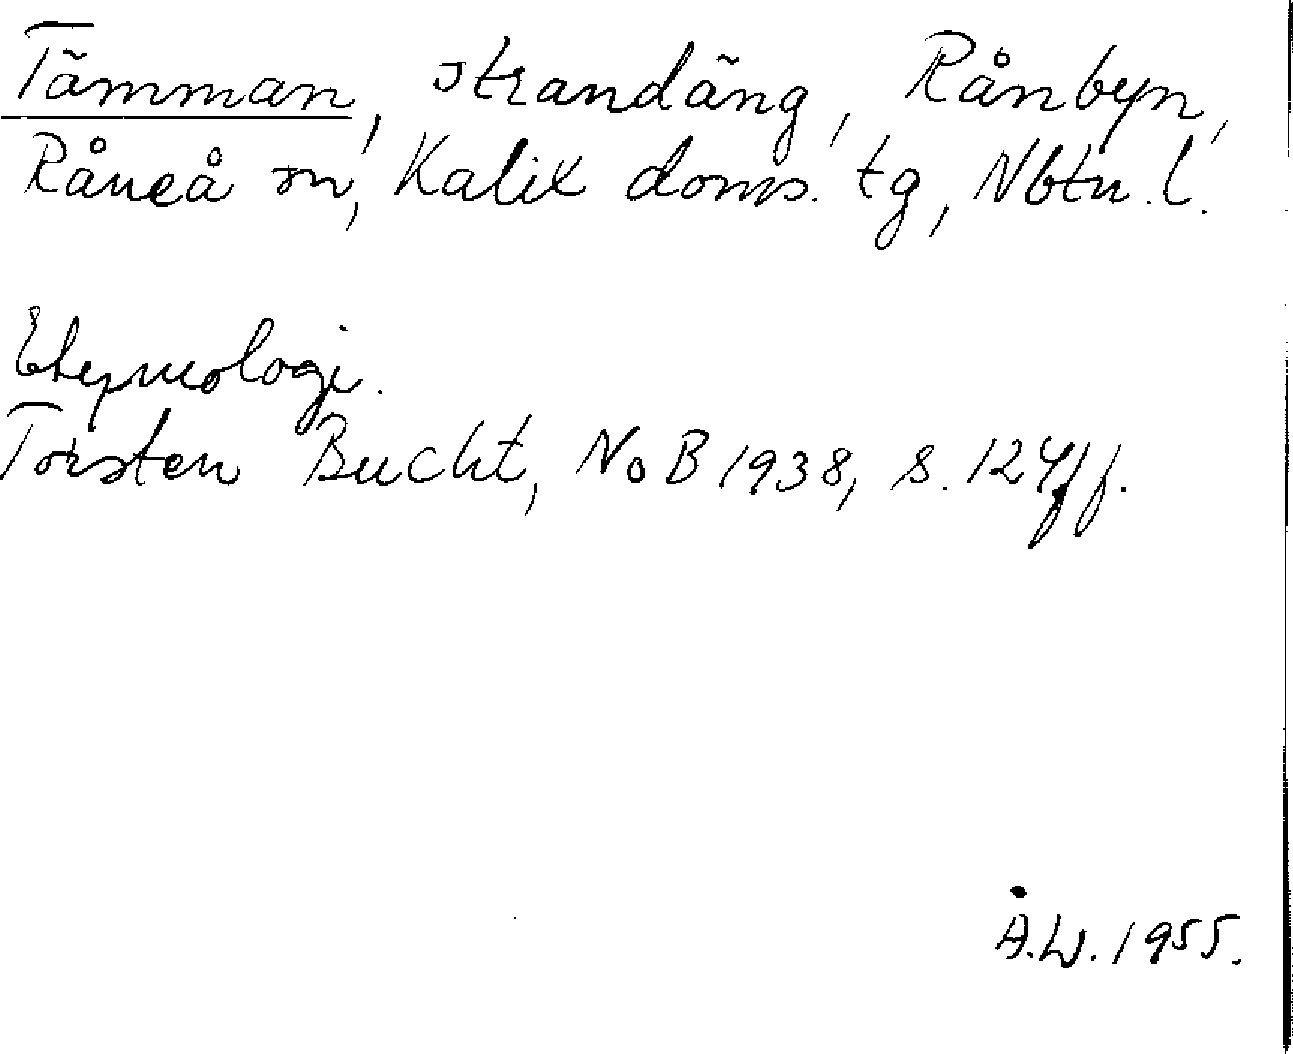 Tämman, strandäng, Rånbyn,
Råneå sn, Kalix doms. tg, Nbtn. l.
Etymologi.
Torsten Bucht, NoB 1938, s. 124 ff.
Å.W. 1955.